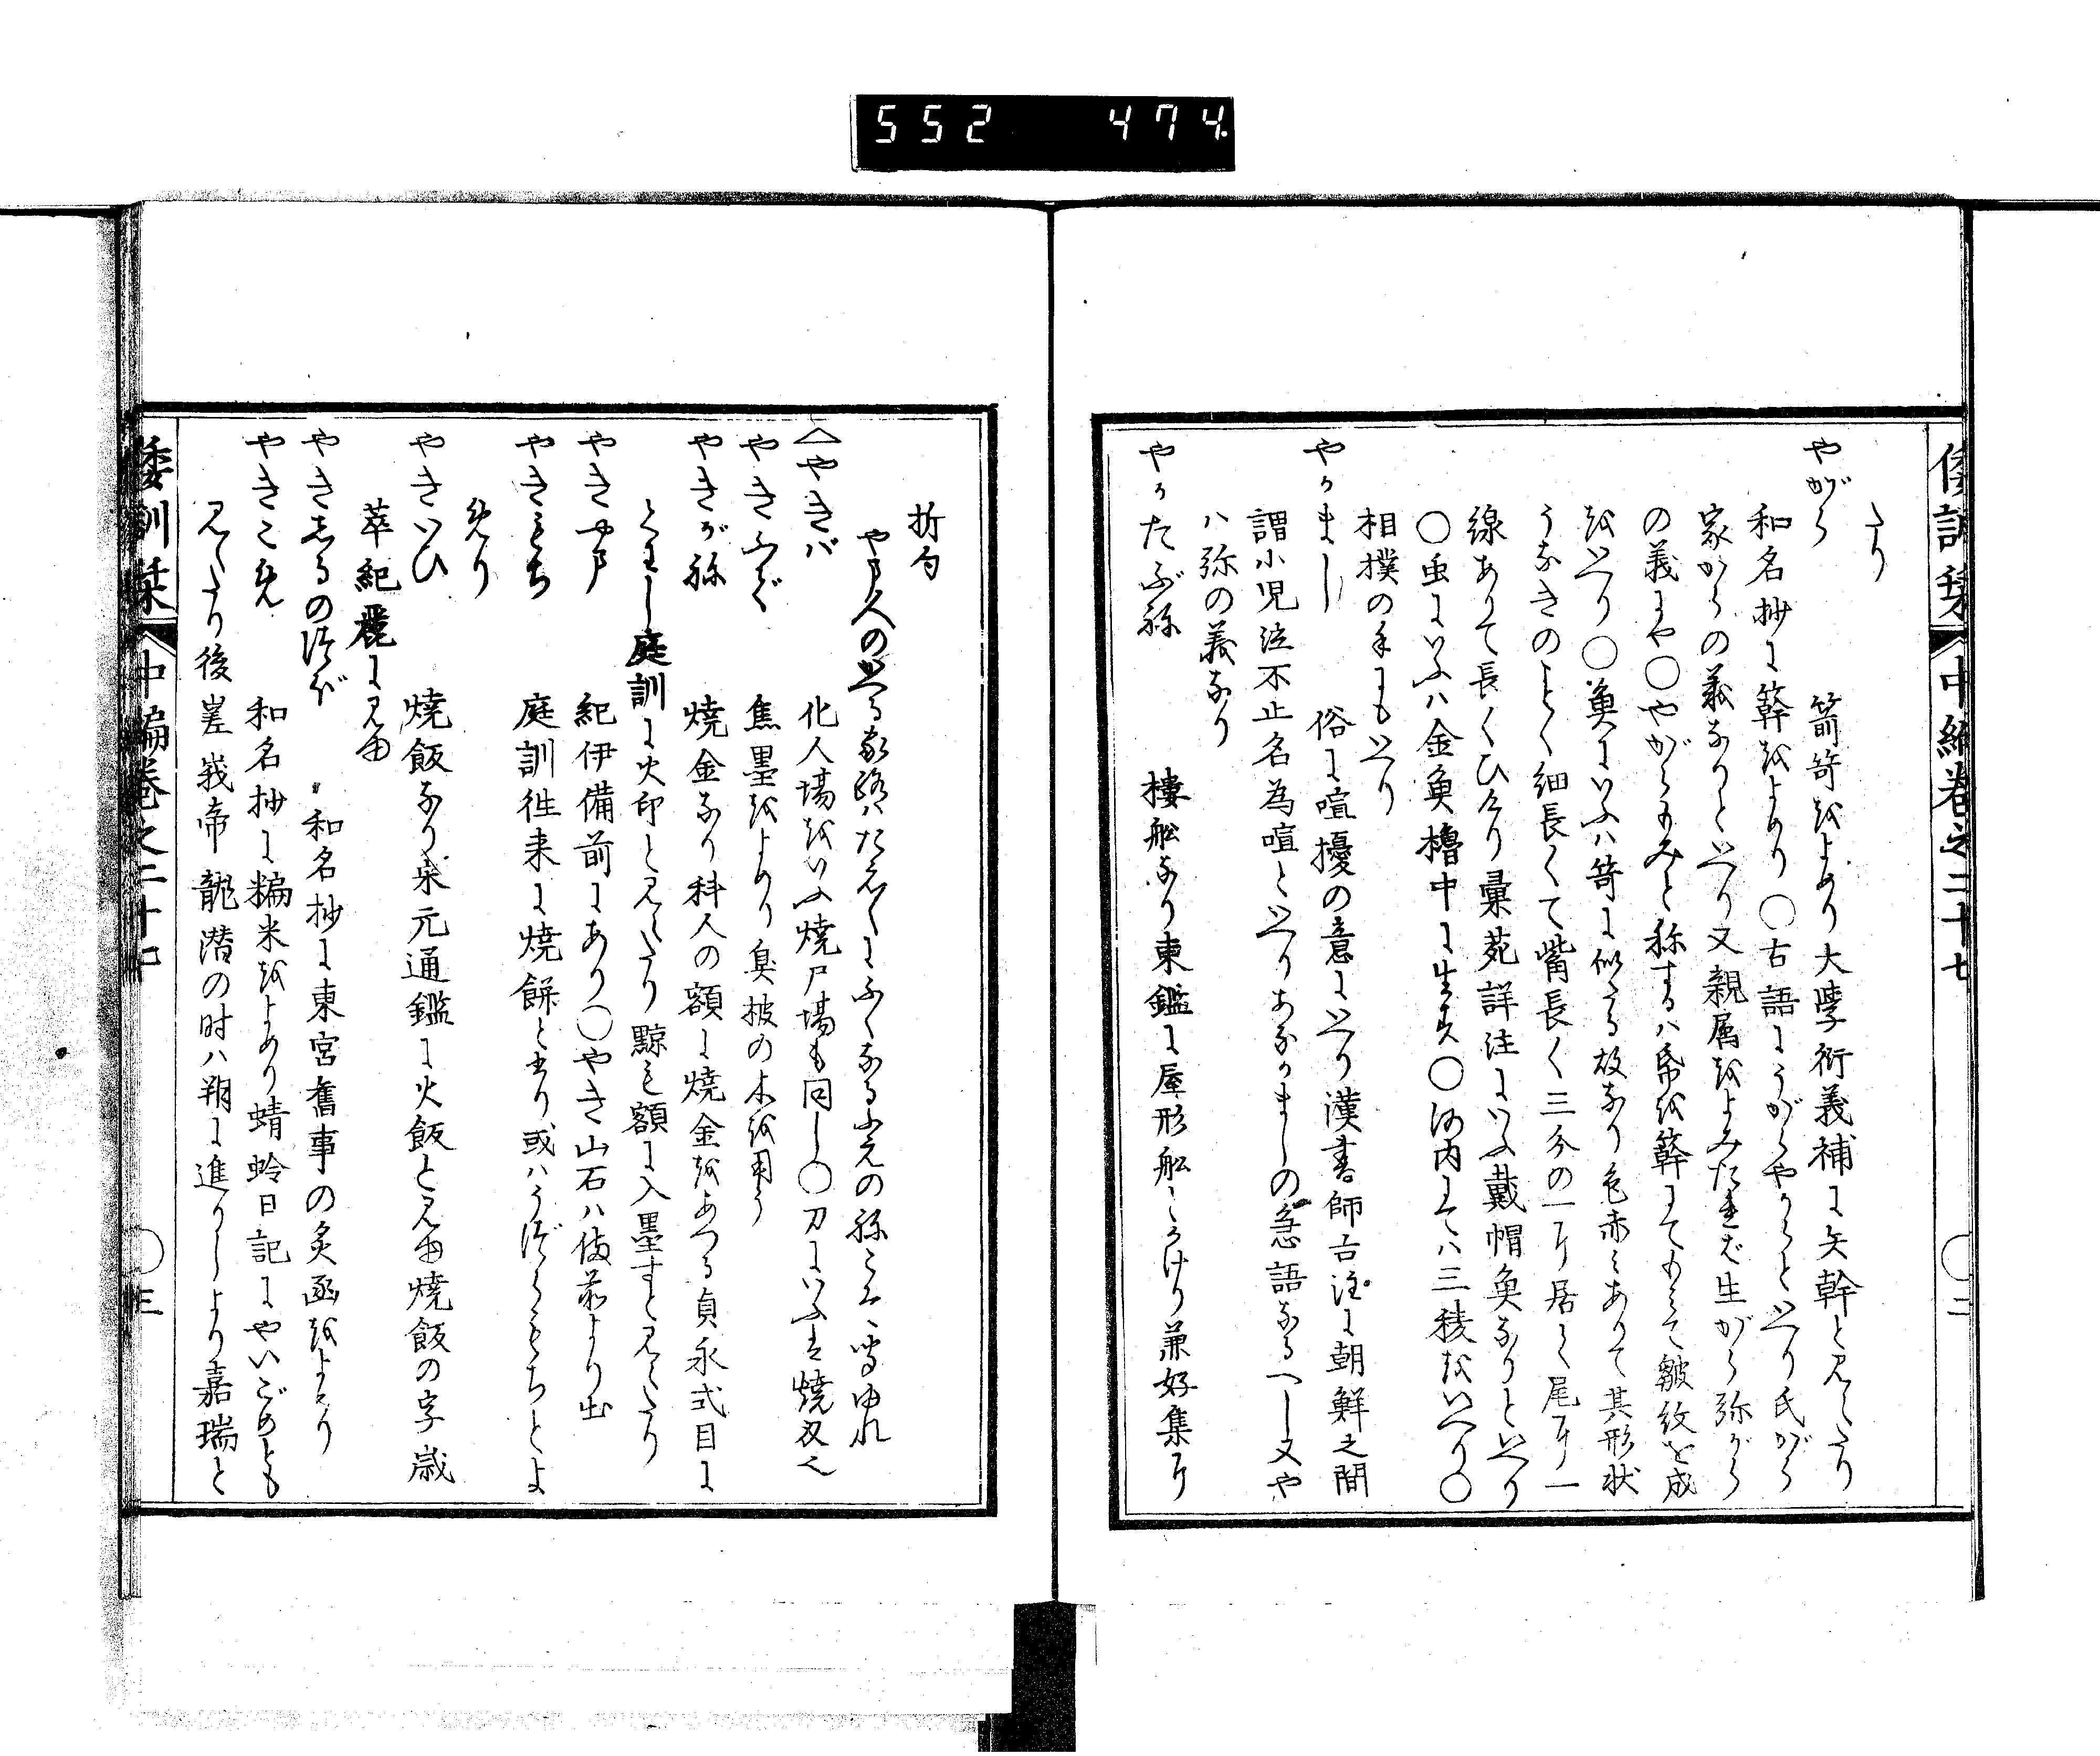 552 474.
倭訓栞 中編巻之二十七 二
たり
やがら 箭笴をよめり大学衍義補に矢幹と見えたり
和名抄に簳をよめり〇古語にうがらやからといへり氏がら
家からの義なりといへり又親属をよみたれば生がら弥がら
の義にや〇やがらもみと称するハ帛を簳にてもみて皺紋を成
をいへり〇魚にいふハ笴に似たる故なり色赤くありて其形状
うなきのことく細長くて嘴長く三分の一に居る尾に一
線ありて長くひけり彙苑詳注にいふ戴帽魚なりといへり
〇虫にいふハ金魚櫓中に生す〇河内にてハ三稜をいへり〇
相撲の手にもいへり
やかまし 俗に喧擾の意にいへり漢書師古注に朝鮮之間
謂小児泣不止名為喧といへりあなかましの急語なるへし又や
ハ弥の義なり
やかたぶね 楼船なり東鑑に屋形船とかけり兼好集に
折句
やま人のいる家路はたえ〳〵にふくなるふえのねこそ聞ゆれ
〽やきば 化人場をいふ焼尸場も同し〇刀にいふは焼刃也
やきふで 焦墨をよめり臭披の木を用う
やきがね 焼金なり科人の額に焼金をあつる貞永式目に
とくにし庭訓に火印と見えたり黥も額に入墨すと見えたり
やきやま 紀伊備前にあり〇やき山石ハ備前より出
やきもち 庭訓往来に焼餅と出り或ハうづらもちとよ
めり
やきいひ 焼飯なり宋元通鑑に火飯と見ゆ焼飯の字歳
華紀麗に見ゆ
やきしるのはこ 和名抄に東宮旧事の炙函をよめり
やきこめ 和名抄に糄米をよめり蜻蛉日記にやいごめとも
見えたり後嵯峨帝龍潜の时ハ朔に進りしより嘉瑞と
倭訓栞 中編巻之二十七 三